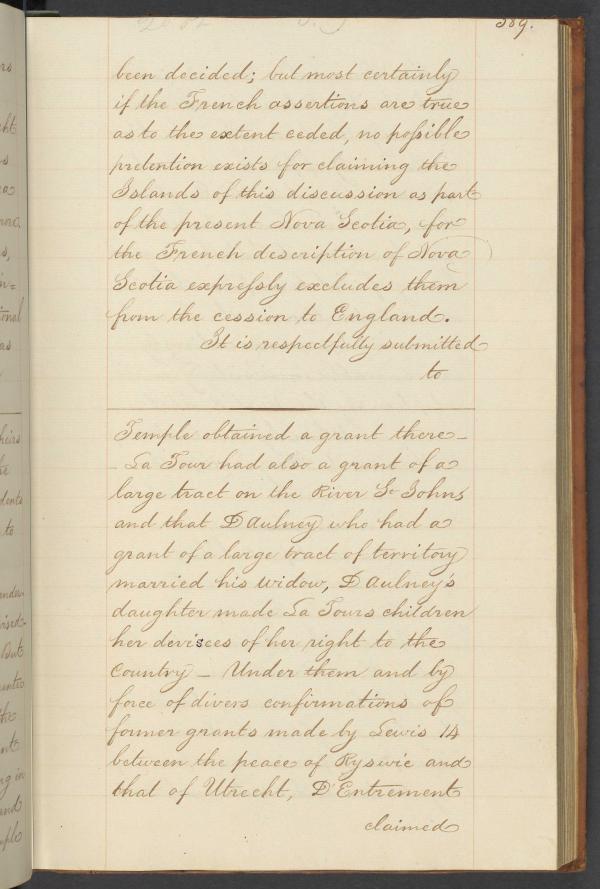 389.
been decided; but most certainly
if the French assertions are true
as to the extent ceded, no possible
pretention exists for claiming the
Islands of this discussion as part
of the present Nova Scotia, for
the French description of Nova
Scotia expressly excludes them
from the cession to England.
It is respectfully submitted
to
Temple obtained a grant there –
– La Tour had also a grant of a
large tract on the River St Johns
and that D'Aulney who had a
grant of a large tract of territory
married his widow, D'Aulney's
daughter made La Tours children
her devisees of her right to the
Country – Under them and by
force of divers confirmations of
former grants made by Lewis 14
between the peace of Ryswic and
that of Utrecht, D'Entrement
claimed